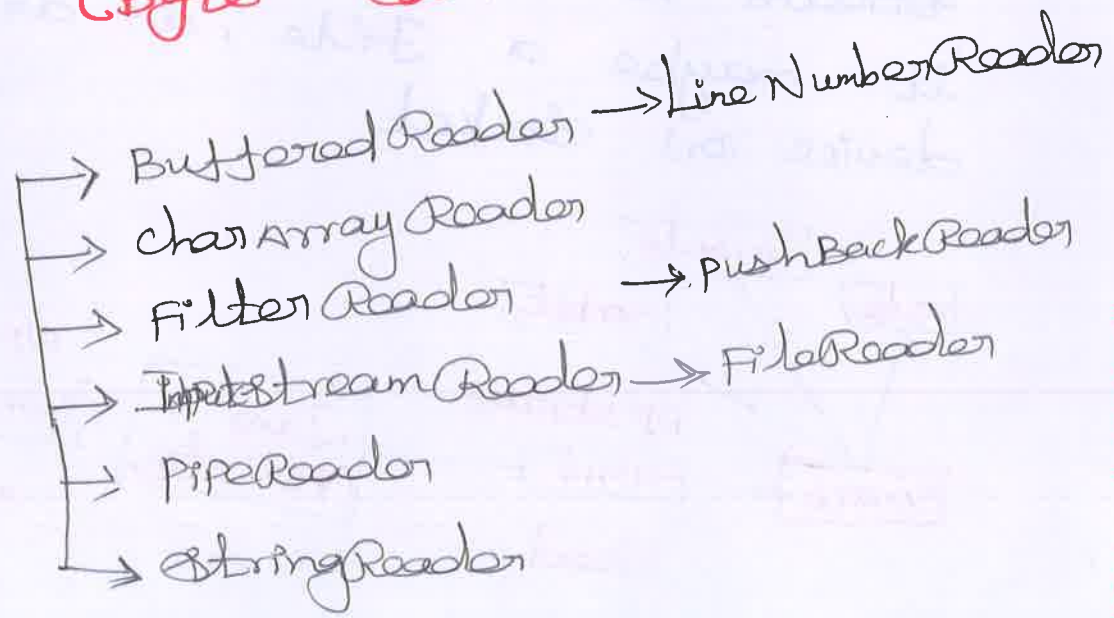 (Byte
BufferedReader → LineNumberReader
CharArrayReader
FilterReader → PushBackReader
InputStreamReader → FileReader
PipeReader
StringReader